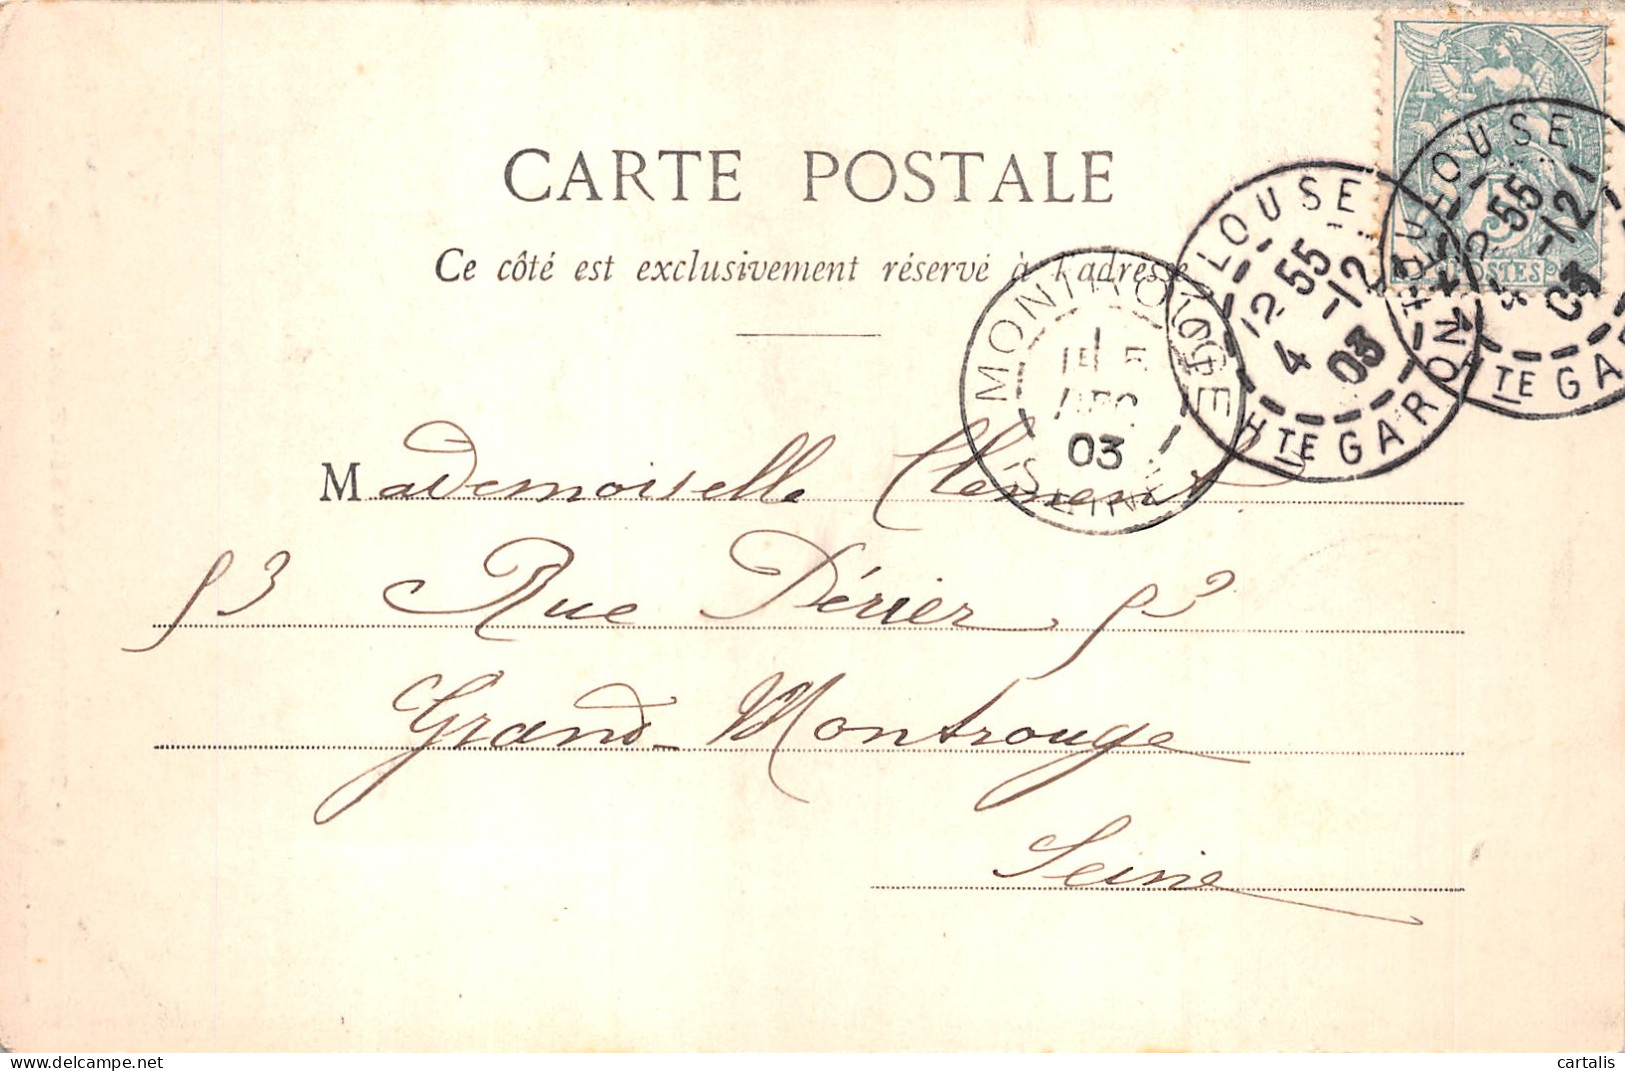 CARTE POSTALE
Ce côté est exclusivement réservé à l'adresse
POSTES
TOULOUSE
12 55
4 -12
03
HTE GARONNE
TOULOUSE
12 55
4 -12
03
HTE GA
MONTROUGE
03
SEINE
Mademoiselle Clément
53 Rue Périer 53
Grand-Montrouge
Seine
delcampe.net
cartalis